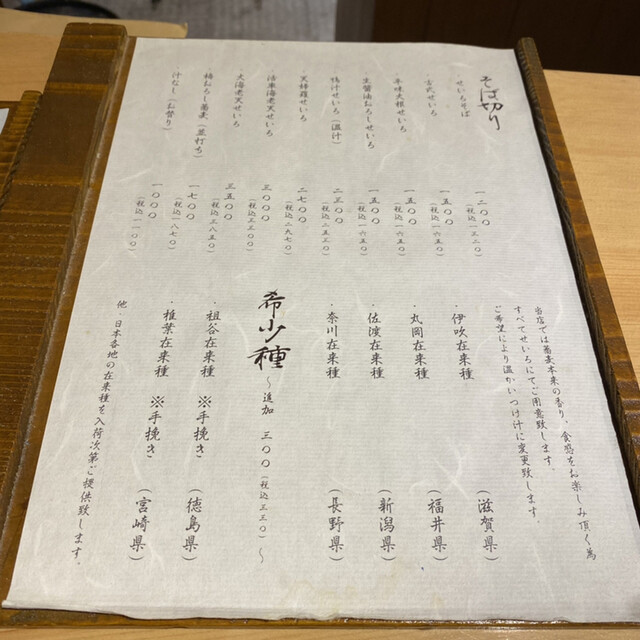 そば切り
・せいろそば 一二〇〇(税込一三二〇)
・古式せいろ 一五〇〇(税込一六五〇)
・辛味大根せいろ 一五〇〇(税込一六五〇)
・生醤油おろしせいろ 一五〇〇(税込一六五〇)
・鴨汁せいろ(温汁) 二三〇〇(税込二五三〇)
・天麩羅せいろ 二七〇〇(税込二九七〇)
・活車海老天せいろ 三〇〇〇(税込三三〇〇)
・大海老天せいろ 三五〇〇(税込三八五〇)
・桶おろし蕎麦(並打ち) 一七〇〇(税込一八七〇)
・汁なし(お替り) 一〇〇〇(税込一一〇〇)
当店では蕎麦本来の香り・食感をお楽しみ頂く為
すべてせいろにてご用意致します。
ご希望により温かいつけ汁に変更致します。
・伊吹在来種 (滋賀県)
・丸岡在来種 (福井県)
・佐渡在来種 (新潟県)
・奈川在来種 (長野県)
希少種 〜追加 三〇〇(税込三三〇)〜
・祖谷在来種 ※手挽き (徳島県)
・椎葉在来種 ※手挽き (宮崎県)
他・日本各地の在来種を入荷次第ご提供致します。